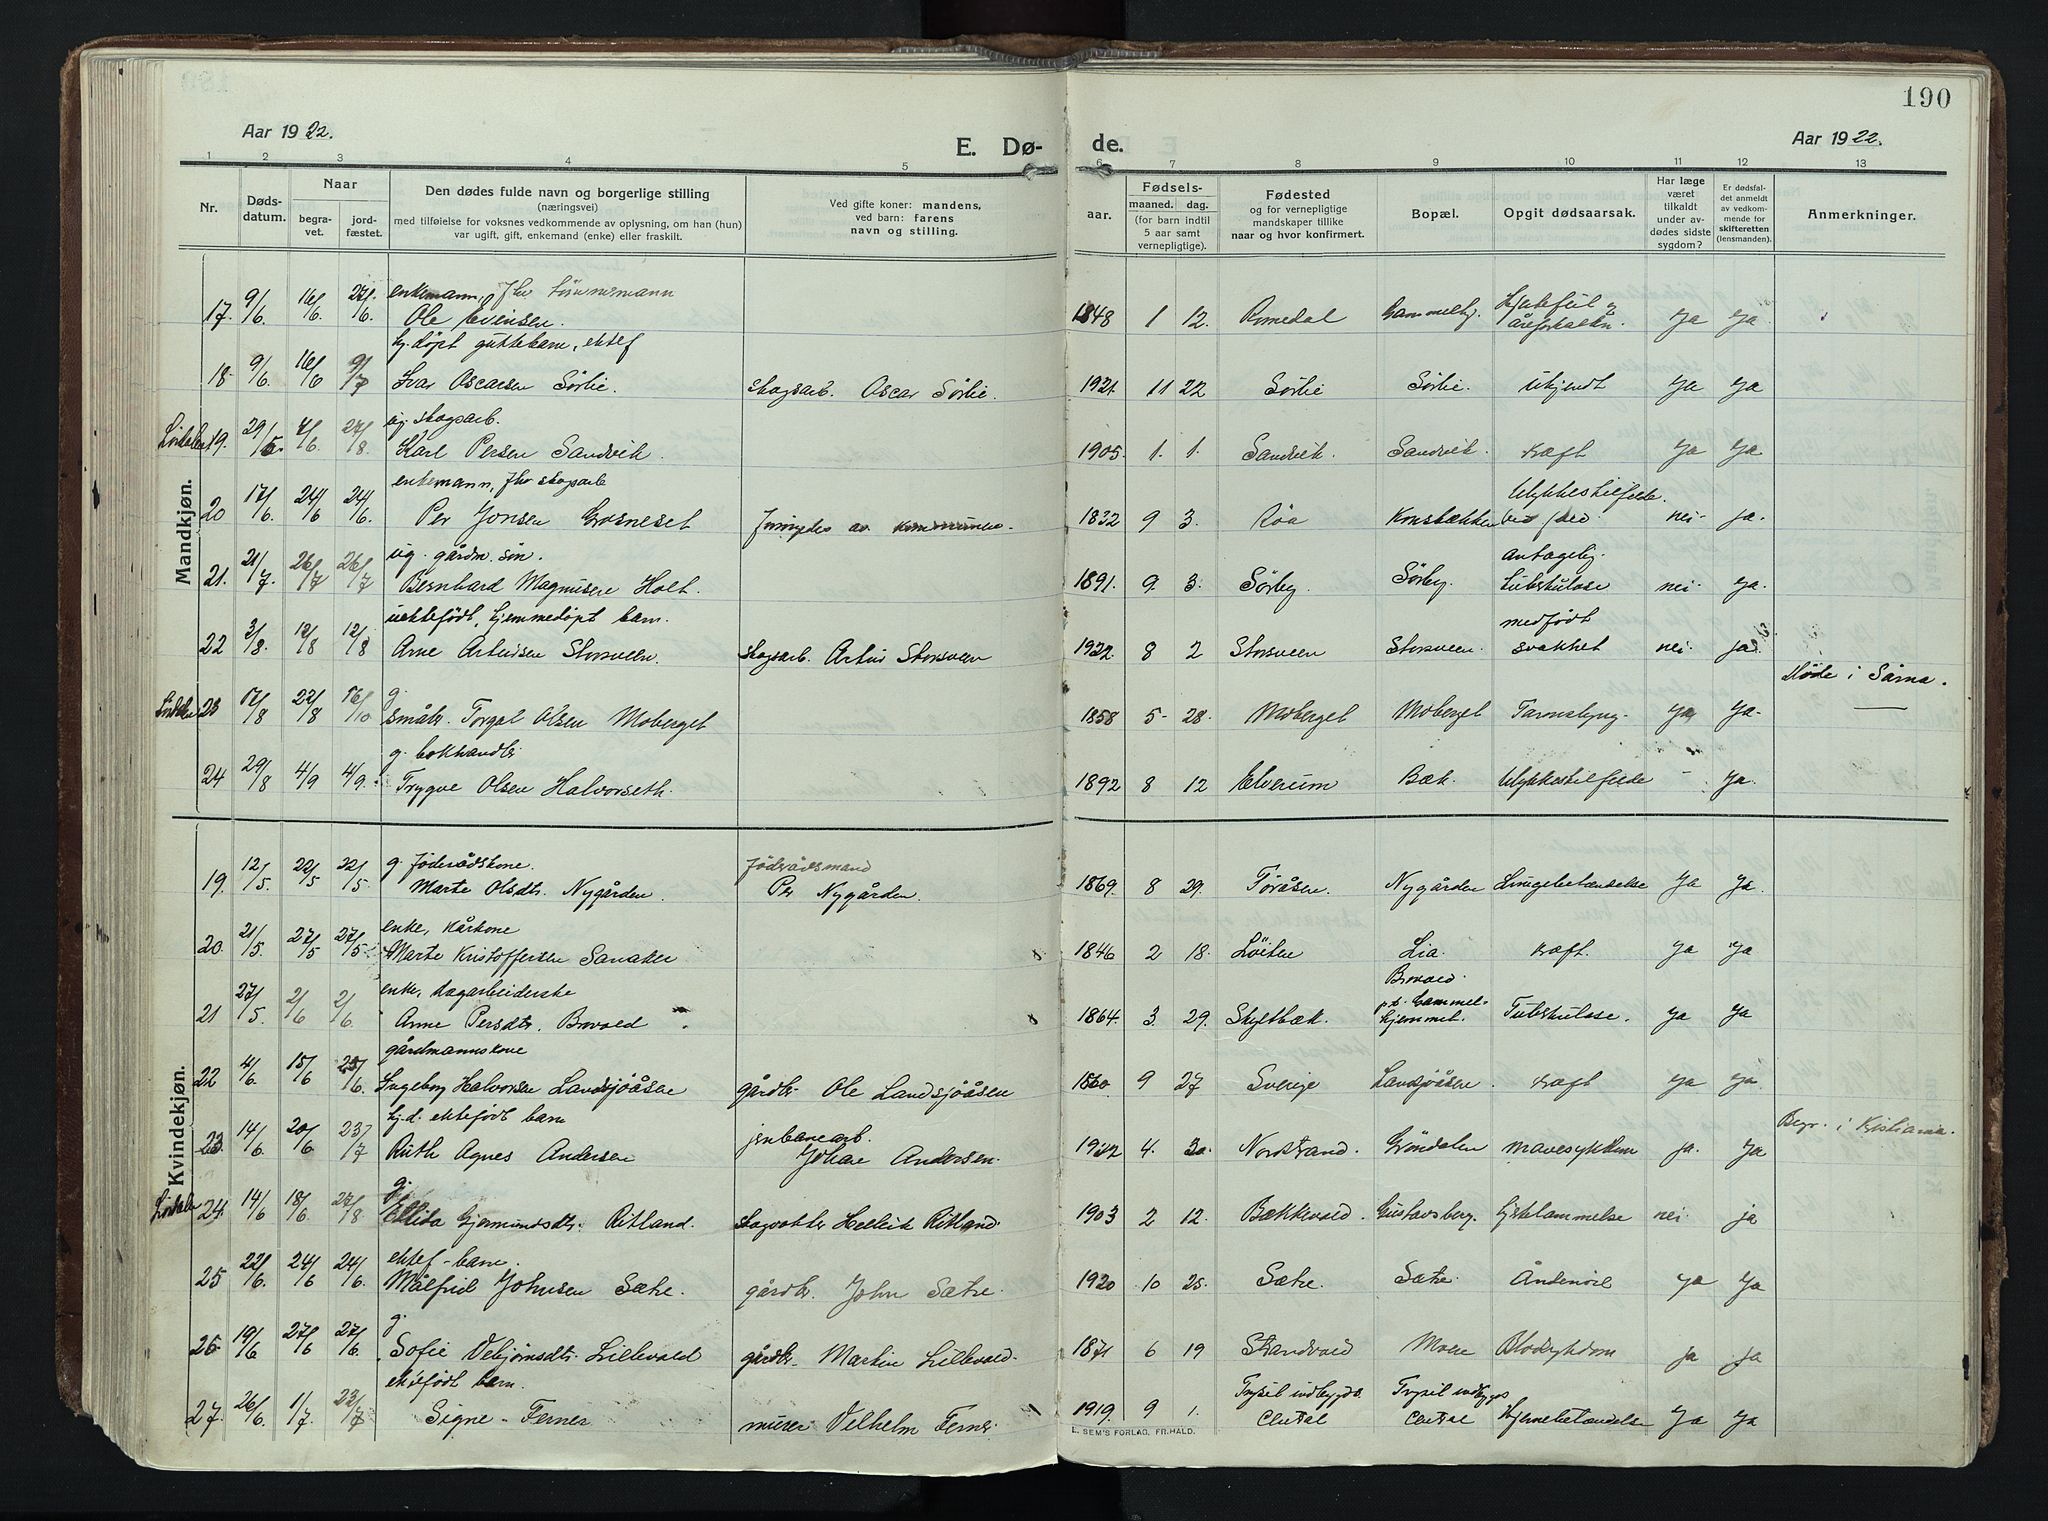 190
Aar 1922.
E. Dø-
de.
Aar 1922.
1 2 3 4 5 6 7 8 9 10 11 12 13
Nr.
Døds-
datum.
Naar
begra-
vet.
jord-
fæstet.
Den dødes fulde navn og borgerlige stilling
(næringsvei)
med tilføielse for voksnes vedkommende av oplysning, om han (hun)
var ugift, gift, enkemand (enke) eller fraskilt.
Ved gifte koner: mandens,
ved barn: farens
navn og stilling.
aar.
Fødsels-
maaned. dag.
(for barn indtil
5 aar samt
vernepligtige).
Fødested
og for vernepligtige
mandskaper tillike
naar og hvor konfirmert.
Bopæl.
Opgit dødsaarsak.
Har læge
været
tilkaldt
under av-
dødes sidste
sygdom?
Er dødsfal-
det anmeldt
av vedkom-
mende for
skifteretten
(lensmanden).
Anmerkninger.
Mandkjøn.
enkemann, fhv tømmermann
17. 9/6. 16/6. 27/6. Ole Evensen. 1848 1 12. Romedal Ja Ja
hj. døpt guttebarn, ektef
18 9/6. 16/6 9/7 Ivar Oscarsen Sørlie. skogsarb. Oscar Sørlie. 1921. 11 22 Sørlie Sørlie. Ukjendt Ja Ja
ug. skogsarb.
19. 29/5. 7/6. 27/8. Karl Persen Sandvik. 1905. 1. 1. Sandvik. Sandvik. Kræft Ja Ja
enkemann, fhv skogsarb
Ulykkestilfelde.
20 17/6. 24/6 24/6. Per Jonsen Grosneset Forsørgedes av kommunen. 1832 9 3. Røa nei. ja.
ug. gårdm. søn.
Antagelig.
21. 21/7. 26/7 26/7 Bernhard Magnusen Holt. 1891. 9. 3. Sørby. Sørby. tuberkulose nei. ja.
uektefødt, hjemmedøpt barn.
medfødt
22 3/8. 12/8 12/8 Arne Artursen Storsveen. skogsarb. Artur Storsveen 1922. 8 2 Storsveen Storsveen. svakhet nei. ja.
Døde i Särna.
g.
23 17/8 22/8 16/10 småbr. Torgal Olsen Moberget 1858 5 28. Moberget Moberget Ja Ja.
g. bokhandler
24 29/8 4/9 4/9. Trygve Olsen Halvorseth. 1892 8 12 Elverum Bæk. Ulykkestilfelde - Ja.
Kvindekjøn.
g. föderådskone. födrådsmand
19. 12/5. 22/5 22/5. Marte Olsdtr. Nygården. Per Nygården. 1869. 8 29. Töråsen. Nygården Lungebetændelse Ja Ja.
enke, kårkone
20. 21/5. 27/5 27/5. Marte Kristoffersen Sanaker 1846 2 18. Löiten Lia. Kræft. Ja Ja
enke, dagarbeiderske
Brovold.
p.t. Gammel-
21 27/5. 2/6 2/6. Anne Persdtr. Brovold 1864. 3. 29. Skjelbæk. hjemmet. Tuberkulose. Ja Ja
gårdmannskone
22 4/6. 15/6 25/6. Ingeborg Halvorsen Landsjöåsen gårdbr Ole Landsjöåsen 1860. 9 27 Sverige Landsjöåsen. Kræft Ja Ja.
hj.d. ektefødt barn
jernbanearb.
Begr. i Kristiania.
23. 14/6. 20/6 23/7 Ruth Agnes Andersen Johan Andersen. 1922 4. 30. Nordstrand. Gröndalen mavesykdom ja. Ja
g.
24. 14/6 18/6. 27/8 Ellida Gjermundsdtr. Ritland. Hellik Ritland 1903 2 12. Bækkevold. Gustavsberg. Hjertelammelse nei. ja
ektef-barn.
25 22/6. 24/6 24/6. Målfrid Johnsen Sætre. gårdbr. John Sætre. 1920 10 25. Sætre. Sætre. Ja Ja
g.
26. 19/6 27/6 27/6. Sofie Vebjörnsdtr. Lillevold gårdbr. Martin Lillevold. 1871 6 19 Strandvold Moen Blodsykdom ja ja
ektefödt barn.
Trysil indbygds Trysil indbygds
27. 26/6. 1/7. 23/7 Signe Ferner murer Vilhelm Ferner 1919. 9 1. Central Central Hjernebetændelse Ja Ja
E. SEM'S FORLAG, FR.HALD.